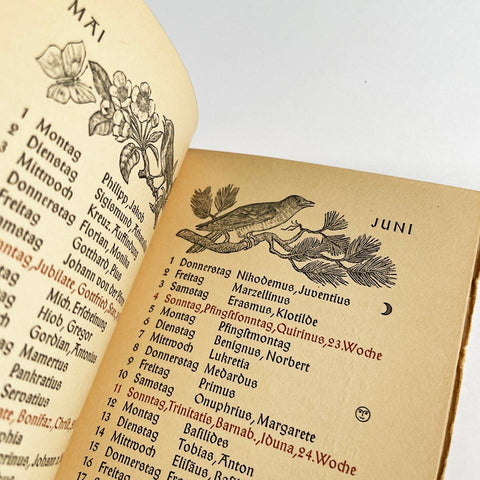 MAI
1 Montag Philipp, Jakob
2 Dienstag Sigismund,
3 Mittwoch Kreuz. Auffindung
Donnerstag Florian, Monika
Freitag Gotthard, Pius
Samstag Johann von der
Sonntag, Jubilate, Gottfried,
Montag Mich. Erscheinung
Dienstag Hiob, Gregor
Gordian,
Mamertus
Pankratius
Servatius
Bonifaz,
JUNI
1 Donnerstag Nikodemus, Juventius
2 Freitag Marzellinus
3 Samstag Erasmus, Klotilde
4 Sonntag, Pfingstsonntag, Quirinus, 23. Woche
5 Montag Pfingstmontag
6 Dienstag Benignus, Norbert
7 Mittwoch Lukretia
8 Donnerstag Medardus
9 Freitag Primus
10 Samstag Onuphrius, Margarete
11 Sonntag, Trinitatis, Barnab., Iduna, 24. Woche
12 Montag Basilides
13 Dienstag Tobias, Anton
14 Mittwoch Elisäus,
15 Donnerstag
16 Freitag
17